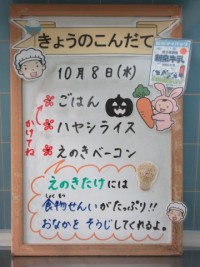 きょうのこんだて
10月8日(水)
ごはん
ハヤシライス
かけてね
えのきベーコン
えのきたけには
しょくもつ
食物せんいがたっぷり!!
おなかをそうじしてくれるよ。